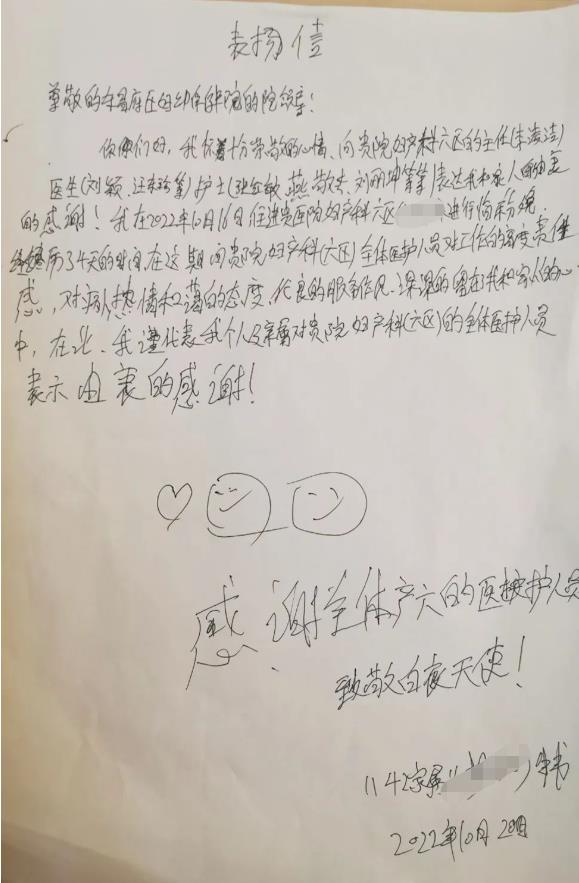 表扬信
尊敬的妇幼保健院的院领导！
你们好，我怀着十分崇敬的心情、向贵院妇产科六区的主任(朱
医生(刘颖、 护士( 敏、燕 、刘丽坤等等)表达我和家人由衷
的感谢！我在2022年10月16日住进贵医院妇产科六区 进行
经历了4天的时间，在这期间贵院妇产科(六区)全体医护人员对工作的高度责任
感，对病人热情和蔼的态度，优良的服务 深深的留在我和家人的心
中，在此、我谨代表我个人及家属对贵院妇产科(六区)的全体医护人员
表示由衷的感谢！
感谢全体产六的医护人员
致敬白衣天使！
1142家属 书
2022年10月20日